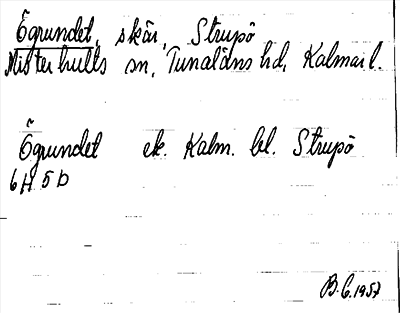 Ögrundet, skär, Strupö
Misterhults sn, Tunaläns hd, Kalmar l.
Ögrundet ek. Kalm. bl. Strupö
6H 5b
B.C. 1957